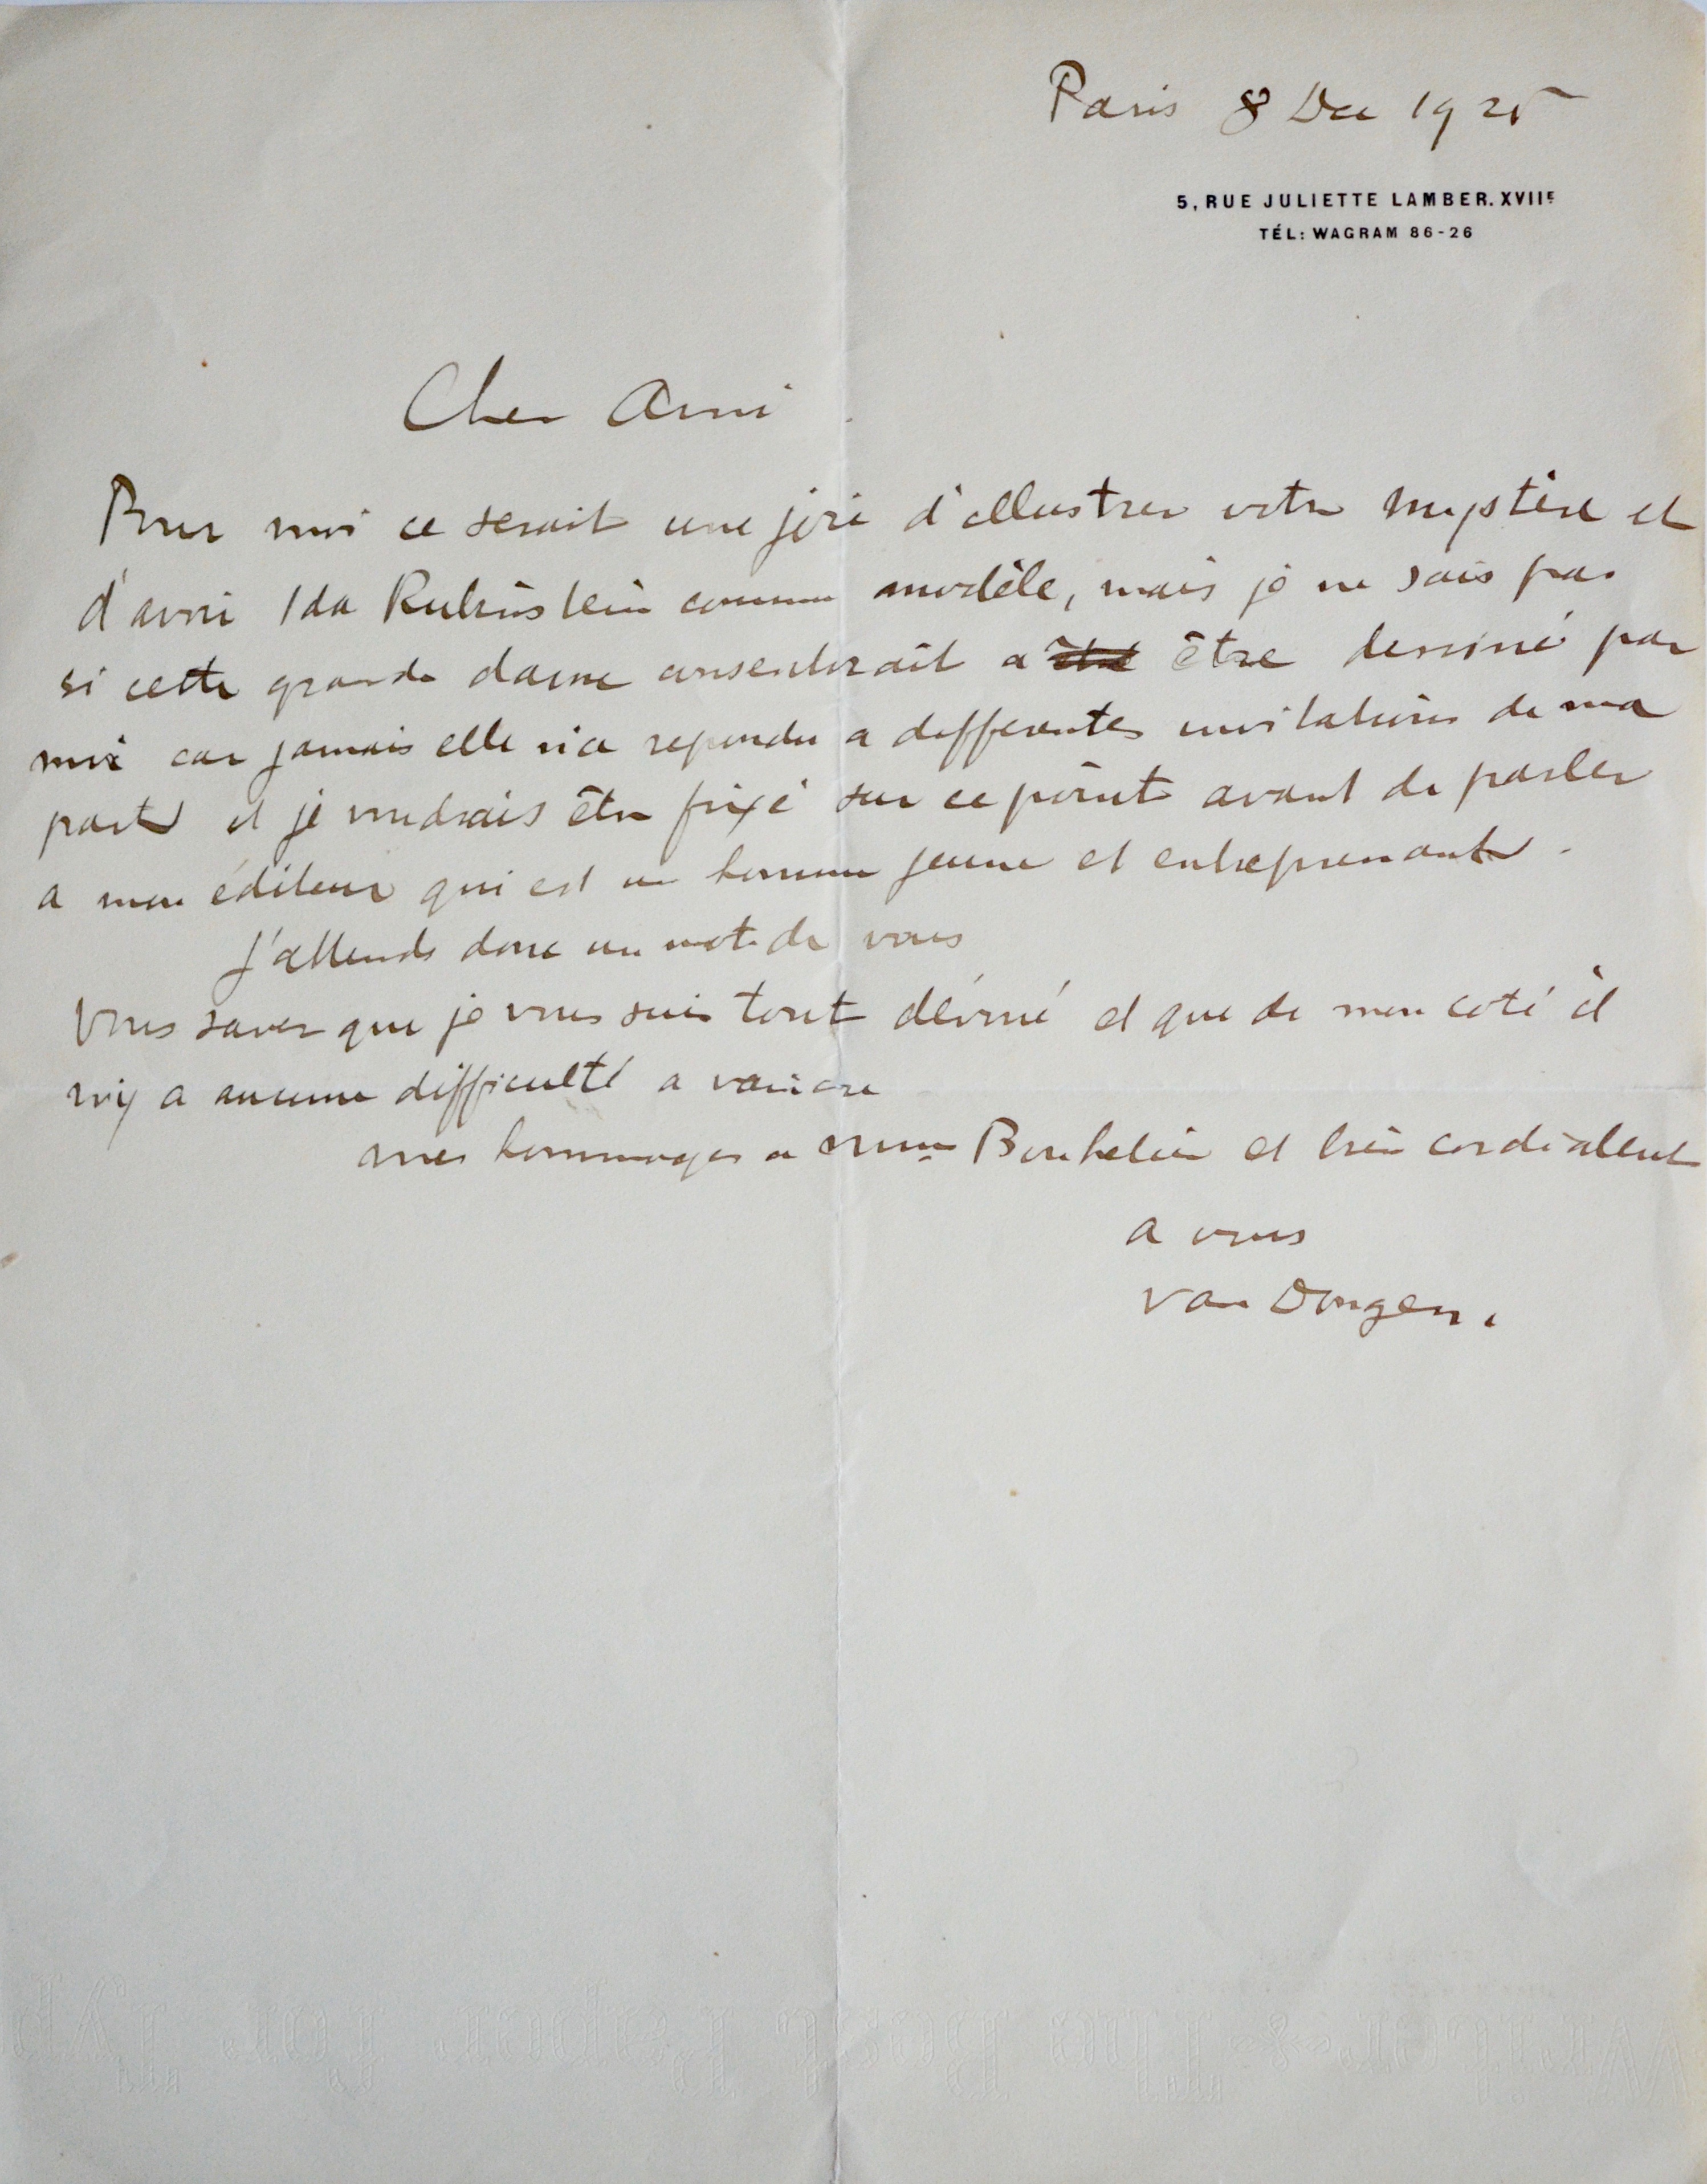 Paris 8 Dec 1925
5, RUE JULIETTE LAMBER. XVIIE
TÉL: WAGRAM 86-26
Cher Ami
Pour moi ce serait une joie d'illustrer votre mystère et
d'avoir Ida Rubinstein comme modèle, mais je ne sais pas
si cette grande dame consenterait a être dessiné par
moi car jamais elle n'a repondu a differentes invitations de ma
part et je voudrais être fixé sur ce point avant de parler
a mon éditeur qui est un homme jeune et entreprenant.
J'attends donc un mot de vous
Vous savez que je vous suis tout dévoué et que de mon coté il
n'y a aucune difficulté a vaincre
mes hommages a Mme et bien cordialent
a vous
van Dongen.